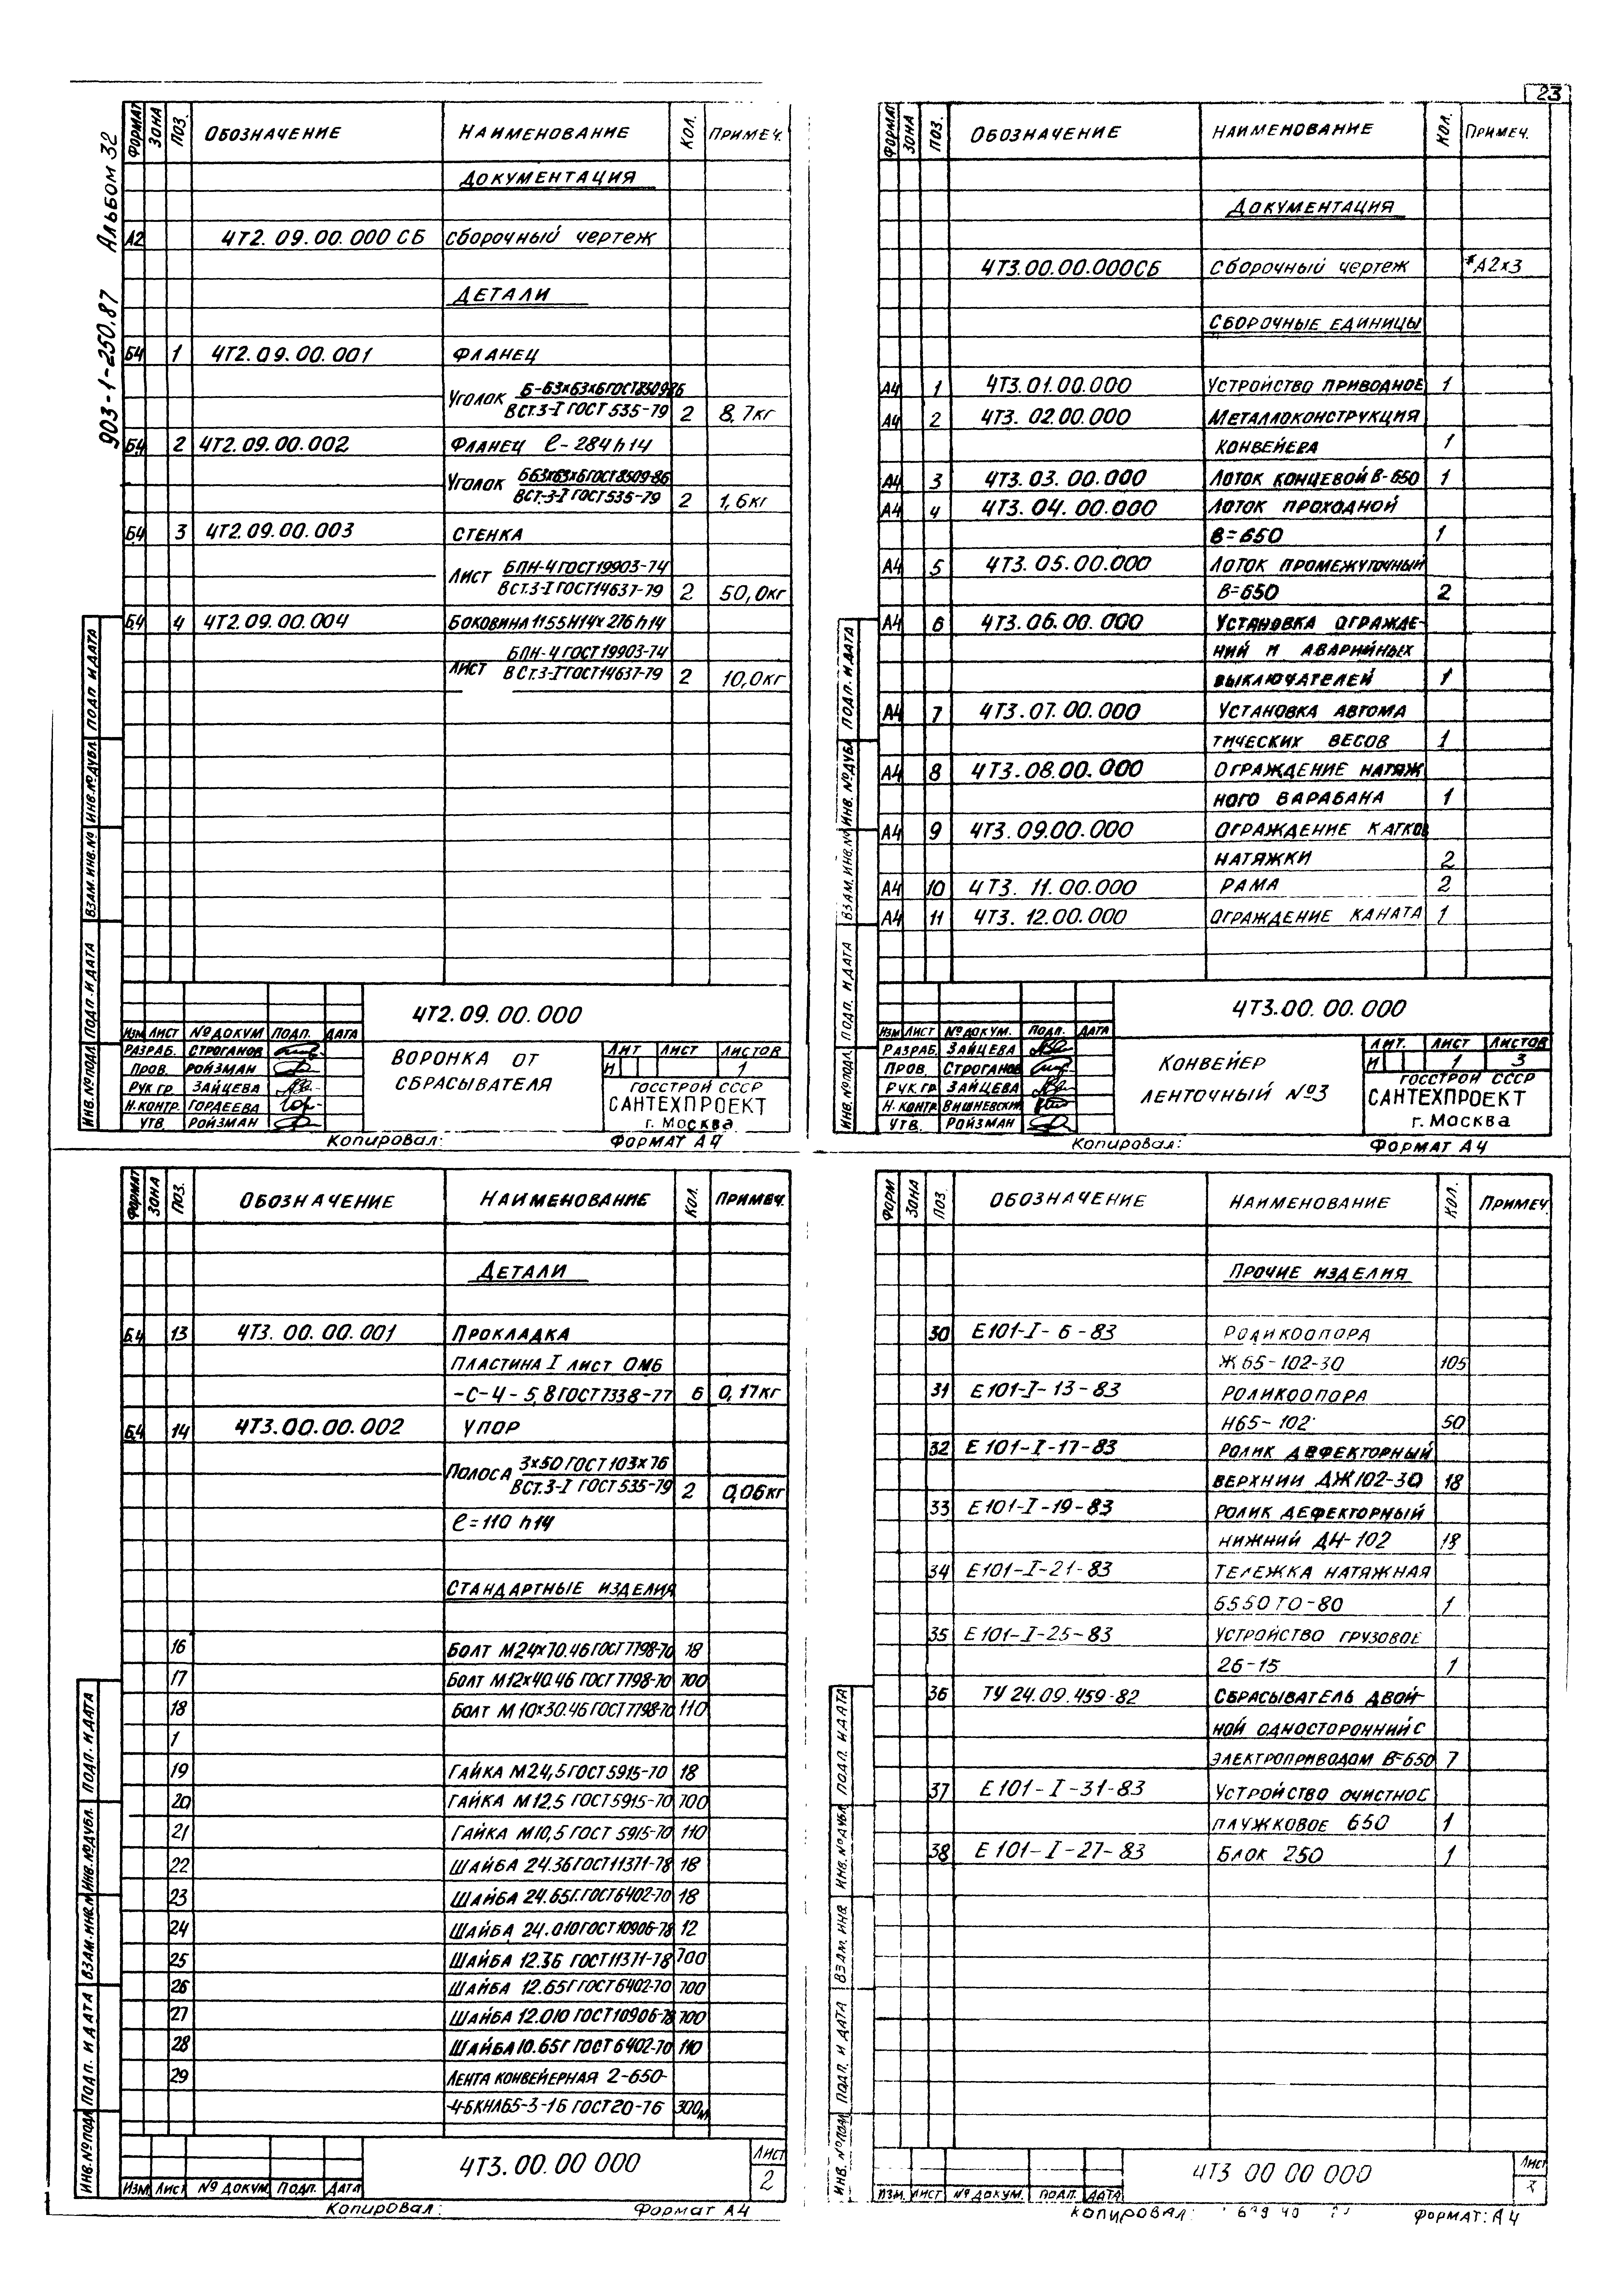 23
903-1-250.87 Альбом 32
ФОРМАТ ЗОНА ПОЗ. ОБОЗНАЧЕНИЕ НАИМЕНОВАНИЕ КОЛ. ПРИМЕЧ.
ДОКУМЕНТАЦИЯ
А2 4Т2.09.00.000 СБ Сборочный чертеж
ДЕТАЛИ
Б4 1 4Т2.09.00.001 ФЛАНЕЦ
Уголок Б-63х63х6 ГОСТ 8509-86
ВСт.3-I ГОСТ 535-79 2 8,7кг
Б4 2 4Т2.09.00.002 ФЛАНЕЦ ℓ-284h14
Уголок Б63х63х6 ГОСТ 8509-86
ВСт.3-I ГОСТ 535-79 2 1,6кг
Б4 3 4Т2.09.00.003 СТЕНКА
Лист БПН-4 ГОСТ 19903-74
ВСт.3-I ГОСТ 14637-79 2 50,0кг
Б4 4 4Т2.09.00.004 БОКОВИНА 1155H14х276h14
Лист БПН-4 ГОСТ 19903-74
ВСт.3-I ГОСТ 14637-79 2 10,0кг
ИНВ.№ПОДЛ. ПОДП. И ДАТА ВЗАМ.ИНВ.№ ИНВ.№ДУБЛ. ПОДП. И ДАТА
4Т2.09.00.000
ИЗМ ЛИСТ №ДОКУМ ПОДП. ДАТА
РАЗРАБ. СТРОГАНОВ
ПРОВ. РОЙЗМАН
РУК.ГР. ЗАЙЦЕВА
Н.КОНТР. ГОРДЕЕВА
УТВ. РОЙЗМАН
ВОРОНКА ОТ
СБРАСЫВАТЕЛЯ
ЛИТ ЛИСТ ЛИСТОВ
И 1
ГОССТРОЙ СССР
САНТЕХПРОЕКТ
г. Москва
Копировал: ФОРМАТ А4
ФОРМАТ ЗОНА ПОЗ. ОБОЗНАЧЕНИЕ НАИМЕНОВАНИЕ КОЛ. ПРИМЕЧ.
ДОКУМЕНТАЦИЯ
4Т3.00.00.000СБ Сборочный чертеж *А2х3
СБОРОЧНЫЕ ЕДИНИЦЫ
А4 1 4Т3.01.00.000 УСТРОЙСТВО ПРИВОДНОЕ 1
А4 2 4Т3.02.00.000 МЕТАЛЛОКОНСТРУКЦИЯ
КОНВЕЙЕРА 1
А4 3 4Т3.03.00.000 ЛОТОК КОНЦЕВОЙ В-650 1
А4 4 4Т3.04.00.000 ЛОТОК ПРОХОДНОЙ
В=650 1
А4 5 4Т3.05.00.000 ЛОТОК ПРОМЕЖУТОЧНЫЙ
В=650 2
А4 6 4Т3.06.00.000 УСТАНОВКА ОГРАЖДЕ-
НИЙ И АВАРИЙНЫХ
ВЫКЛЮЧАТЕЛЕЙ 1
А4 7 4Т3.07.00.000 УСТАНОВКА АВТОМА
ТИЧЕСКИХ ВЕСОВ 1
А4 8 4Т3.08.00.000 ОГРАЖДЕНИЕ НАТЯЖ
НОГО БАРАБАНА 1
А4 9 4Т3.09.00.000 ОГРАЖДЕНИЕ КАТКОВ
НАТЯЖКИ 2
А4 10 4Т3.11.00.000 РАМА 2
А4 11 4Т3.12.00.000 ОГРАЖДЕНИЕ КАНАТА 1
ИНВ.№ПОДЛ. ПОДП. И ДАТА ВЗАМ.ИНВ.№ ИНВ.№ДУБЛ ПОДП. И ДАТА
4Т3.00.00.000
ИЗМ ЛИСТ №ДОКУМ. ПОДП. ДАТА
РАЗРАБ. ЗАЙЦЕВА
ПРОВ. СТРОГАНОВ
РУК.ГР. ЗАЙЦЕВА
Н.КОНТР ВИШНЕВСКИЙ
УТВ. РОЙЗМАН
КОНВЕЙЕР
ЛЕНТОЧНЫЙ №3
ЛИТ. ЛИСТ ЛИСТОВ
И 1 3
ГОССТРОЙ СССР
САНТЕХПРОЕКТ
г. Москва
Копировал: ФОРМАТ А4
ФОРМАТ ЗОНА ПОЗ. ОБОЗНАЧЕНИЕ НАИМЕНОВАНИЕ КОЛ. ПРИМЕЧ.
ДЕТАЛИ
Б4 13 4Т3.00.00.001 ПРОКЛАДКА
ПЛАСТИНА I ЛИСТ ОМБ
-С-4-5,8 ГОСТ 7338-77 6 0,17кг
Б4 14 4Т3.00.00.002 УПОР
ПОЛОСА 3х50 ГОСТ 103х76
ВСт.3-I ГОСТ 535-79 2 0,06кг
ℓ=110 h14
СТАНДАРТНЫЕ ИЗДЕЛИЯ
16 БОЛТ М24х70.46 ГОСТ 7798-70 18
17 БОЛТ М12х40.46 ГОСТ 7798-70 700
18 БОЛТ М10х30.46 ГОСТ 7798-70 110
1
19 ГАЙКА М24,5 ГОСТ 5915-70 18
20 ГАЙКА М12,5 ГОСТ 5915-70 700
21 ГАЙКА М10,5 ГОСТ 5915-70 110
22 ШАЙБА 24.36 ГОСТ 11371-78 18
23 ШАЙБА 24.65Г.ГОСТ 6402-70 18
24 ШАЙБА 24.010 ГОСТ 10906-78 12
25 ШАЙБА 12.36 ГОСТ 11371-78 700
26 ШАЙБА 12.65Г ГОСТ 6402-70 700
27 ШАЙБА 12.010 ГОСТ 10906-78 700
28 ШАЙБА 10.65Г ГОСТ 6402-70 110
29 ЛЕНТА КОНВЕЙЕРНАЯ 2-650-
-4-БКНЛ65-3-1Б ГОСТ 20-76 300м
ИНВ.№ПОДЛ ПОДП. И ДАТА ВЗАМ.ИНВ.№ ИНВ.№ДУБЛ. ПОДП. И ДАТА
4Т3.00.00 000
ЛИСТ
2
ИЗМ ЛИСТ № ДОКУМ. ПОДП. ДАТА
Копировал: Формат А4
ФОРМ ЗОНА ПОЗ. ОБОЗНАЧЕНИЕ НАИМЕНОВАНИЕ КОЛ. ПРИМЕЧ.
ПРОЧИЕ ИЗДЕЛИЯ
30 Е101-I-6-83 РОЛИКООПОРА
Ж65-102-30 105
31 Е101-I-13-83 РОЛИКООПОРА
Н65-102 50
32 Е101-I-17-83 РОЛИК ДЕФЕКТОРНЫЙ
ВЕРХНИЙ ДЖ102-30 18
33 Е101-I-19-83 РОЛИК ДЕФЕКТОРНЫЙ
НИЖНИЙ ДН-102 18
34 Е101-I-21-83 ТЕЛЕЖКА НАТЯЖНАЯ
6550ТО-80 1
35 Е101-I-25-83 УСТРОЙСТВО ГРУЗОВОЕ
26-15 1
36 ТУ 24.09.459-82 СБРАСЫВАТЕЛЬ ДВОЙ-
НОЙ ОДНОСТОРОННИЙ С
ЭЛЕКТРОПРИВОДОМ В=650 7
37 Е101-I-31-83 УСТРОЙСТВО ОЧИСТНОЕ
ПЛУЖКОВОЕ 650 1
38 Е101-I-27-83 БЛОК 250 1
ИНВ.№ПОДЛ ПОДП. И ДАТА ВЗАМ. ИНВ. ИНВ.№ДУБЛ ПОДП. И ДАТА
4Т3 00 00 000
ЛИСТ
ИЗМ. ЛИСТ №ДОКУМ. ПОДП. ДАТА
Копировал: ФОРМАТ: А4